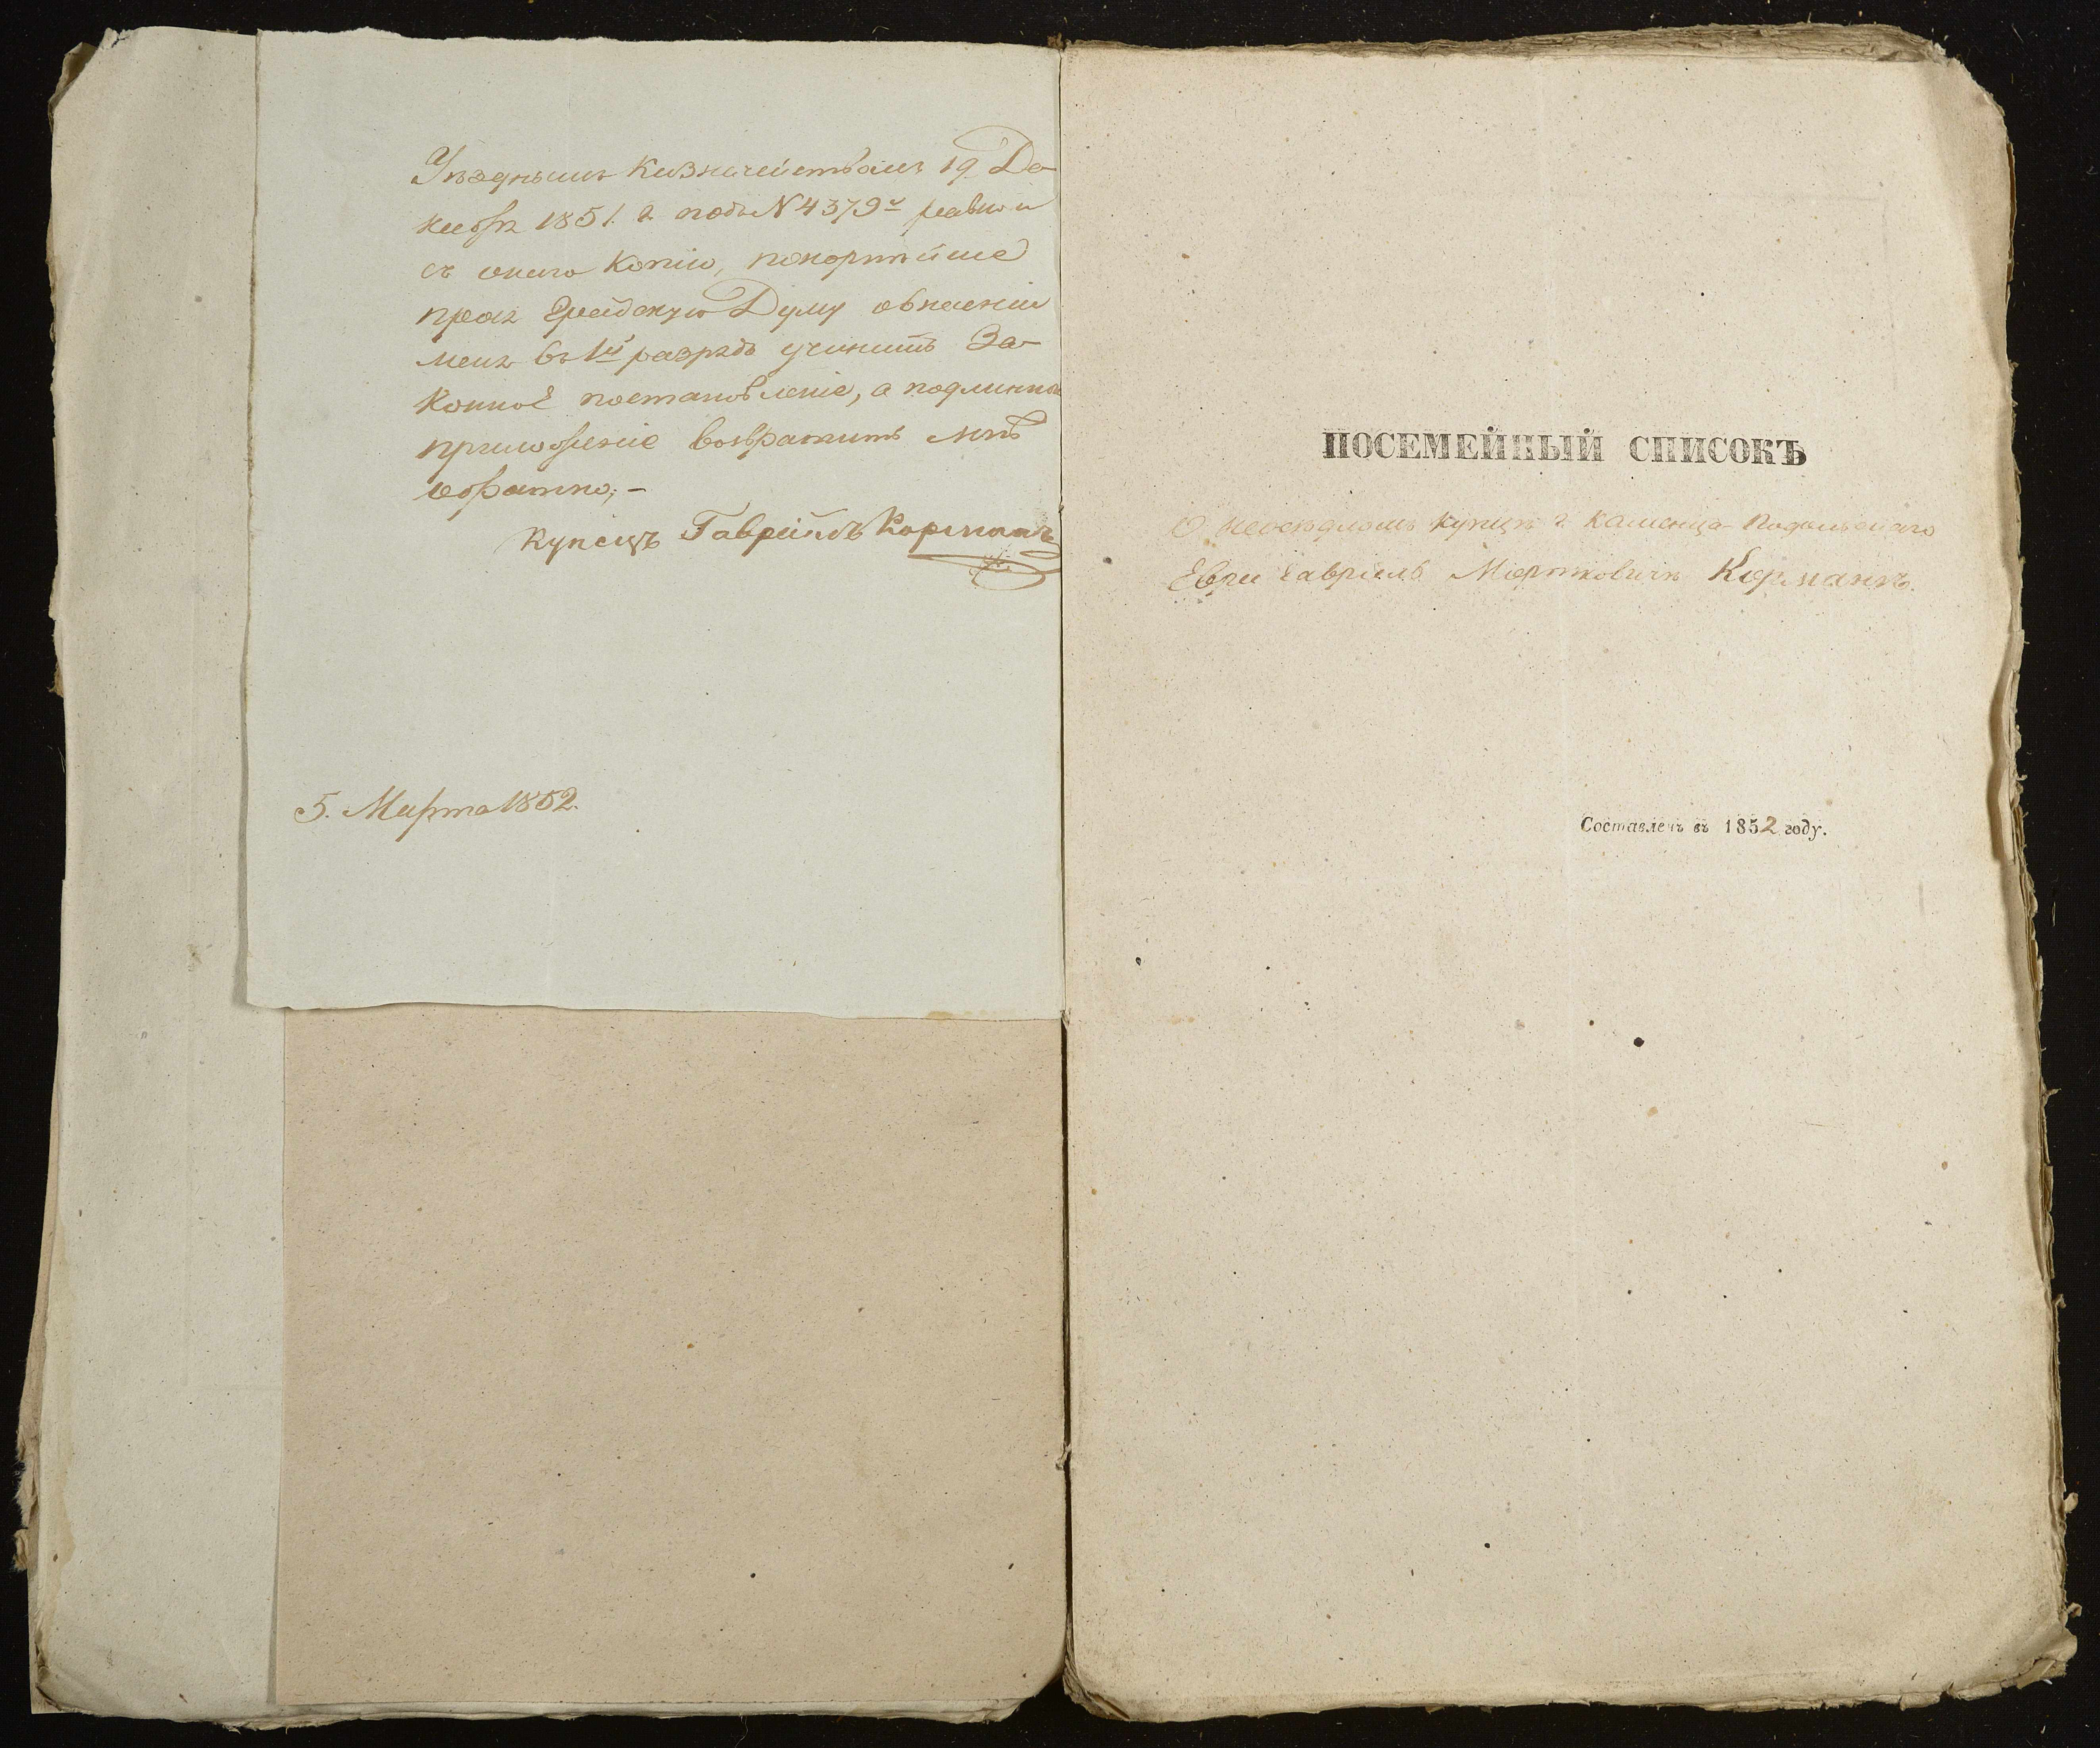 Уѣзднымъ Казначействомъ 19 Де-
кабря 1851. г. подъ N 4379м равно и
съ онаго копію, покорнѣйше
прошу Градскую Думу о внесеніи
меня въ 1й разрядъ учинить За-
конное постановленіе, а подлинное
приложеніе возвратить мнѣ
обратно; —
Купецъ Гавреиль Корманъ
5. Марта 1852.
ПОСЕМЕЙНЫЙ СПИСОКЪ
О неосѣдломъ купцѣ г. Каменца-Подольскаго
Евреи Гавріель Мортковичѣ Корманѣ.
Составленъ въ 1852 году.